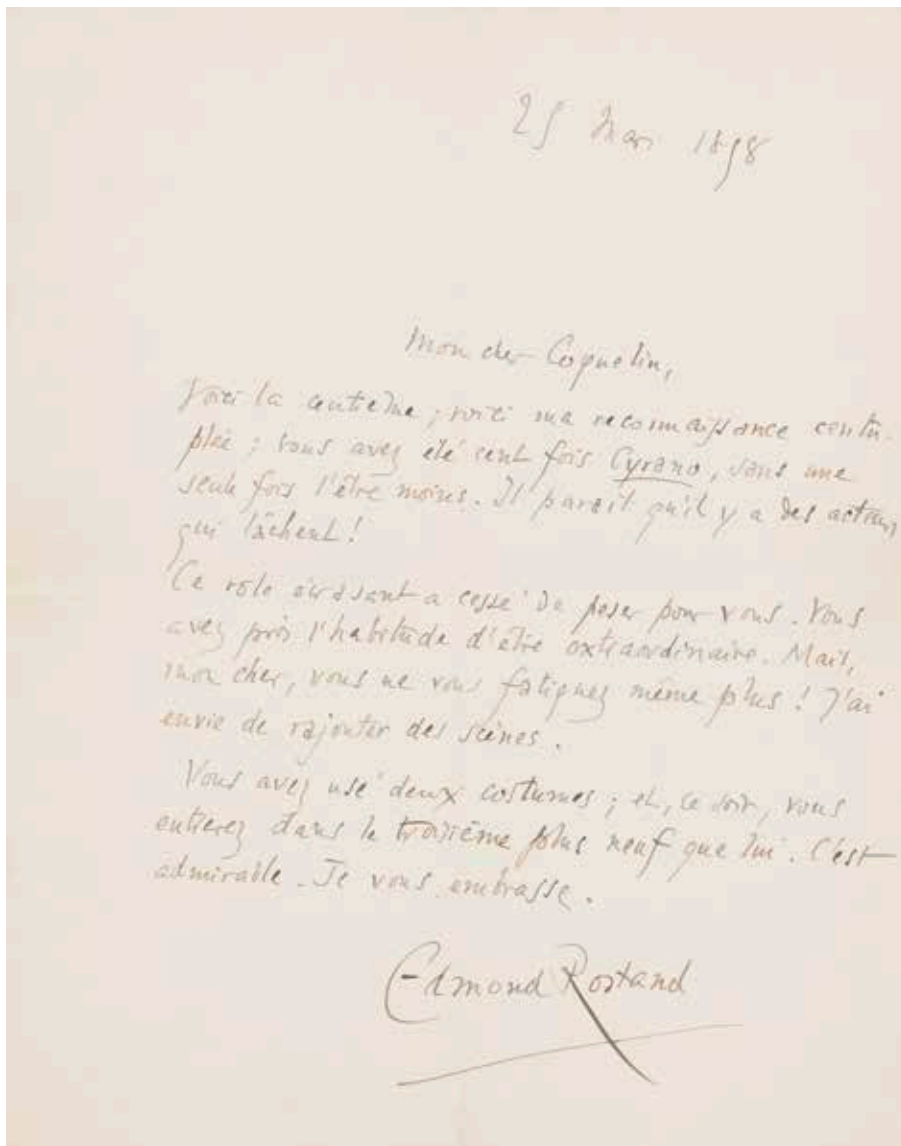 25 Mars 1898
Mon cher Coquelin,
Voici la centième ; voici ma reconnaissance centu-
plée ; vous avez été cent fois Cyrano, sans une
seule fois l'être moins. Il paraît qu'il y a des acteurs
qui lâchent !
Ce rôle écrasant a cessé de peser pour vous. Vous
avez pris l'habitude d'être extraordinaire. Mais,
mon cher, vous ne vous fatiguez même plus ! J'ai
envie de rajouter des scènes.
Vous avez usé deux costumes ; et, ce soir, vous
entrerez dans le troisième plus neuf que lui. C'est
admirable. Je vous embrasse.
Edmond Rostand